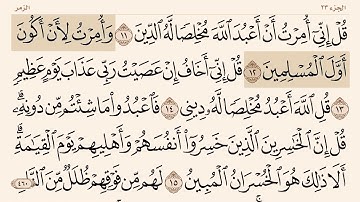 الجزء ٢٣ الزمر
قُلْ إِنِّىٓ أُمِرْتُ أَنْ أَعْبُدَ ٱللَّهَ مُخْلِصًا لَّهُ ٱلدِّينَ ١١ وَأُمِرْتُ لِأَنْ أَكُونَ
أَوَّلَ ٱلْمُسْلِمِينَ ١٢ قُلْ إِنِّىٓ أَخَافُ إِنْ عَصَيْتُ رَبِّى عَذَابَ يَوْمٍ عَظِيمٍ
١٣ قُلِ ٱللَّهَ أَعْبُدُ مُخْلِصًا لَّهُۥ دِينِى ١٤ فَٱعْبُدُوا۟ مَا شِئْتُم مِّن دُونِهِۦ ۗ
قُلْ إِنَّ ٱلْخَـٰسِرِينَ ٱلَّذِينَ خَسِرُوٓا۟ أَنفُسَهُمْ وَأَهْلِيهِمْ يَوْمَ ٱلْقِيَـٰمَةِ ۗ
أَلَا ذَٰلِكَ هُوَ ٱلْخُسْرَانُ ٱلْمُبِينُ ١٥ لَهُم مِّن فَوْقِهِمْ ظُلَلٌ مِّنَ ٱلنَّارِ
٤٦٠